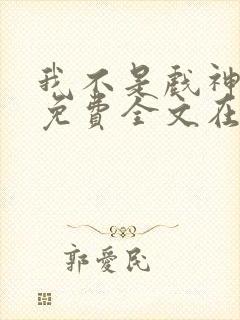 我不是戏神
免費全文在
郭愛民